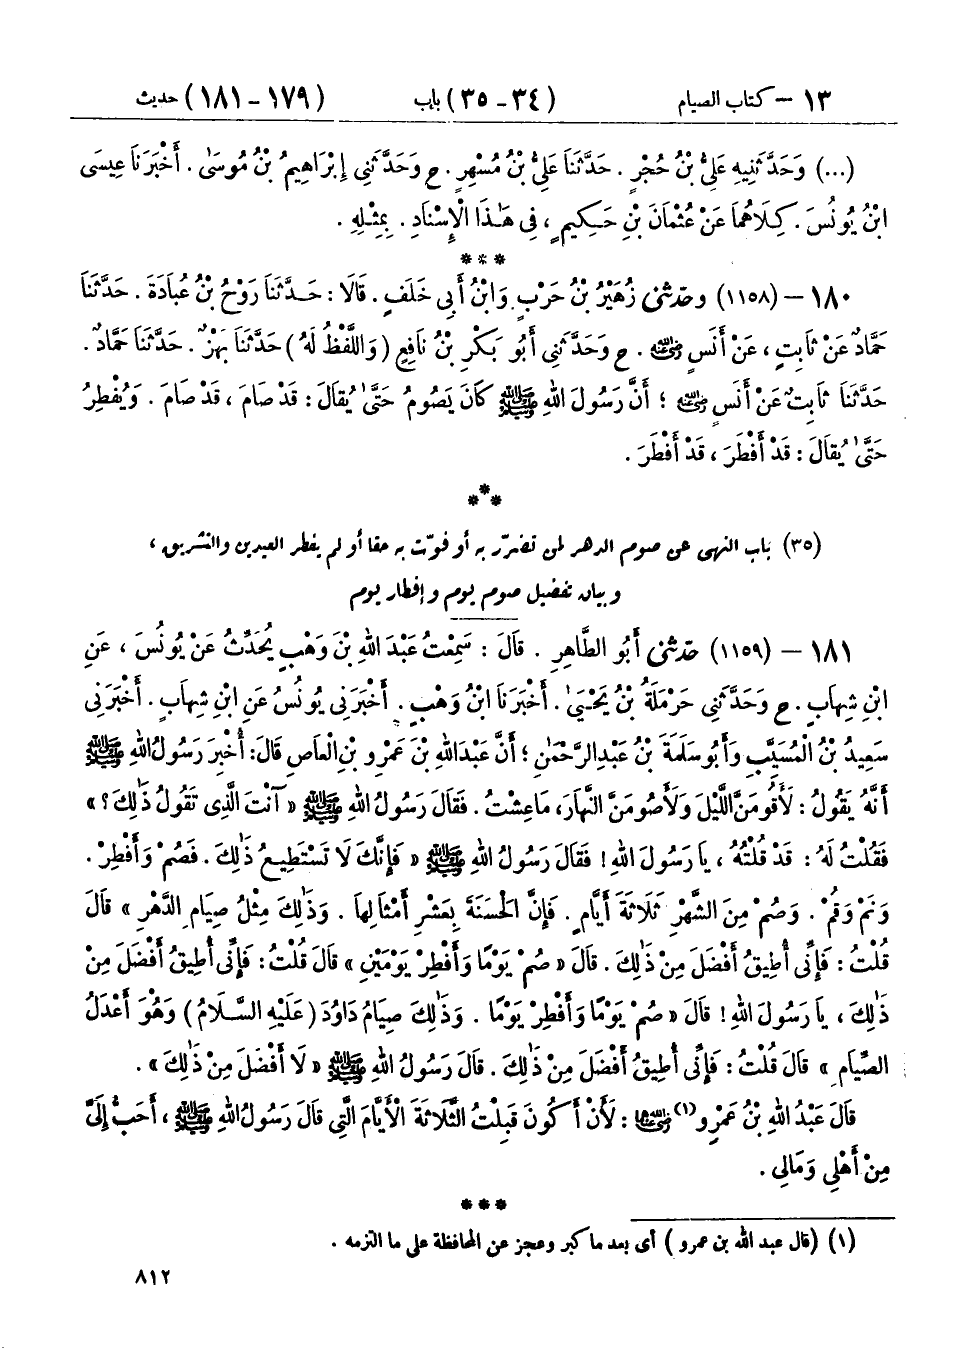 ١٣ – كتاب الصيام (٣٤ - ٣٥) باب (١٧٩ - ١٨١) حديث
(...) وَحَدَّثَنِيهِ عَلِيُّ بْنُ حُجْرٍ . حَدَّثَنَا عَلِيُّ بْنُ مُسْهِرٍ . ح وَحَدَّثَنِي إِبْرَاهِيمُ بْنُ مُوسَىٰ . أَخْبَرَنَا عِيسَى
ابْنُ يُونُسَ . كِلَاهُمَا عَنْ عُثْمَانَ بْنِ حَكِيمٍ ، فِي هَٰذَا الْإِسْنَادِ . بِمِثْلِهِ .
***
١٨٠ – (١١٥٨) وحدثنى زُهَيْرُ بْنُ حَرْبٍ وَابْنُ أَبِي خَلَفٍ . قَالَا : حَدَّثَنَا رَوْحُ بْنُ عُبَادَةَ . حَدَّثَنَا
حَمَّادٌ عَنْ ثَابِتٍ ، عَنْ أَنَسٍ رضي الله عنه . ح وَحَدَّثَنِي أَبُو بَكْرِ بْنُ نَافِعٍ ( وَاللَّفْظُ لَهُ ) حَدَّثَنَا بَهْزٌ . حَدَّثَنَا حَمَّادٌ .
حَدَّثَنَا ثَابِتٌ عَنْ أَنَسٍ رضي الله عنه ؛ أَنَّ رَسُولَ اللهِ ﷺ كَانَ يَصُومُ حَتَّىٰ يُقَالَ : قَدْ صَامَ ، قَدْ صَامَ . وَيُفْطِرُ
حَتَّىٰ يُقَالَ : قَدْ أَفْطَرَ ، قَدْ أَفْطَرَ .
***
(٣٥) باب النهى عن صوم الدهر لمن تضرّر به أو فوّت به حقا أو لم يفطر العيدين والتشريق ،
وبيان تفضيل صوم يوم وإفطار يوم
١٨١ – (١١٥٩) حدثنى أَبُو الطَّاهِرِ . قَالَ : سَمِعْتُ عَبْدَ اللهِ بْنَ وَهْبٍ يُحَدِّثُ عَنْ يُونُسَ ، عَنِ
ابْنِ شِهَابٍ . ح وَحَدَّثَنِي حَرْمَلَةُ بْنُ يَحْيَىٰ . أَخْبَرَنَا ابْنُ وَهْبٍ . أَخْبَرَنِي يُونُسُ عَنِ ابْنِ شِهَابٍ . أَخْبَرَنِي
سَعِيدُ بْنُ الْمُسَيَّبِ وَأَبُو سَلَمَةَ بْنُ عَبْدِ الرَّحْمَٰنِ ؛ أَنَّ عَبْدَ اللهِ بْنَ عَمْرِو بْنِ الْعَاصِ قَالَ : أُخْبِرَ رَسُولُ اللهِ ﷺ
أَنَّهُ يَقُولُ : لَأَقُومَنَّ اللَّيْلَ وَلَأَصُومَنَّ النَّهَارَ ، مَا عِشْتُ . فَقَالَ رَسُولُ اللهِ ﷺ « آنْتَ الَّذِي تَقُولُ ذَٰلِكَ ؟ »
فَقُلْتُ لَهُ : قَدْ قُلْتُهُ ، يَا رَسُولَ اللهِ ! فَقَالَ رَسُولُ اللهِ ﷺ « فَإِنَّكَ لَا تَسْتَطِيعُ ذَٰلِكَ . فَصُمْ وَأَفْطِرْ .
وَنَمْ وَقُمْ . وَصُمْ مِنَ الشَّهْرِ ثَلَاثَةَ أَيَّامٍ . فَإِنَّ الْحَسَنَةَ بِعَشْرِ أَمْثَالِهَا . وَذَٰلِكَ مِثْلُ صِيَامِ الدَّهْرِ » قَالَ
قُلْتُ : فَإِنِّي أُطِيقُ أَفْضَلَ مِنْ ذَٰلِكَ . قَالَ « صُمْ يَوْمًا وَأَفْطِرْ يَوْمَيْنِ » قَالَ قُلْتُ : فَإِنِّي أُطِيقُ أَفْضَلَ مِنْ
ذَٰلِكَ ، يَا رَسُولَ اللهِ ! قَالَ « صُمْ يَوْمًا وَأَفْطِرْ يَوْمًا . وَذَٰلِكَ صِيَامُ دَاوُدَ ( عَلَيْهِ السَّلَامُ ) وَهُوَ أَعْدَلُ
الصِّيَامِ » قَالَ قُلْتُ : فَإِنِّي أُطِيقُ أَفْضَلَ مِنْ ذَٰلِكَ . قَالَ رَسُولُ اللهِ ﷺ « لَا أَفْضَلَ مِنْ ذَٰلِكَ » .
قَالَ عَبْدُ اللهِ بْنُ عَمْرٍو (١) رضي الله عنهما : لَأَنْ أَكُونَ قَبِلْتُ الثَّلَاثَةَ الْأَيَّامَ الَّتِي قَالَ رَسُولُ اللهِ ﷺ ، أَحَبُّ إِلَيَّ
مِنْ أَهْلِي وَمَالِي .
***
(١) ( قال عبد الله بن عمرو ) أى بعد ما كبر وعجز عن المحافظة على ما التزمه .
٨١٢